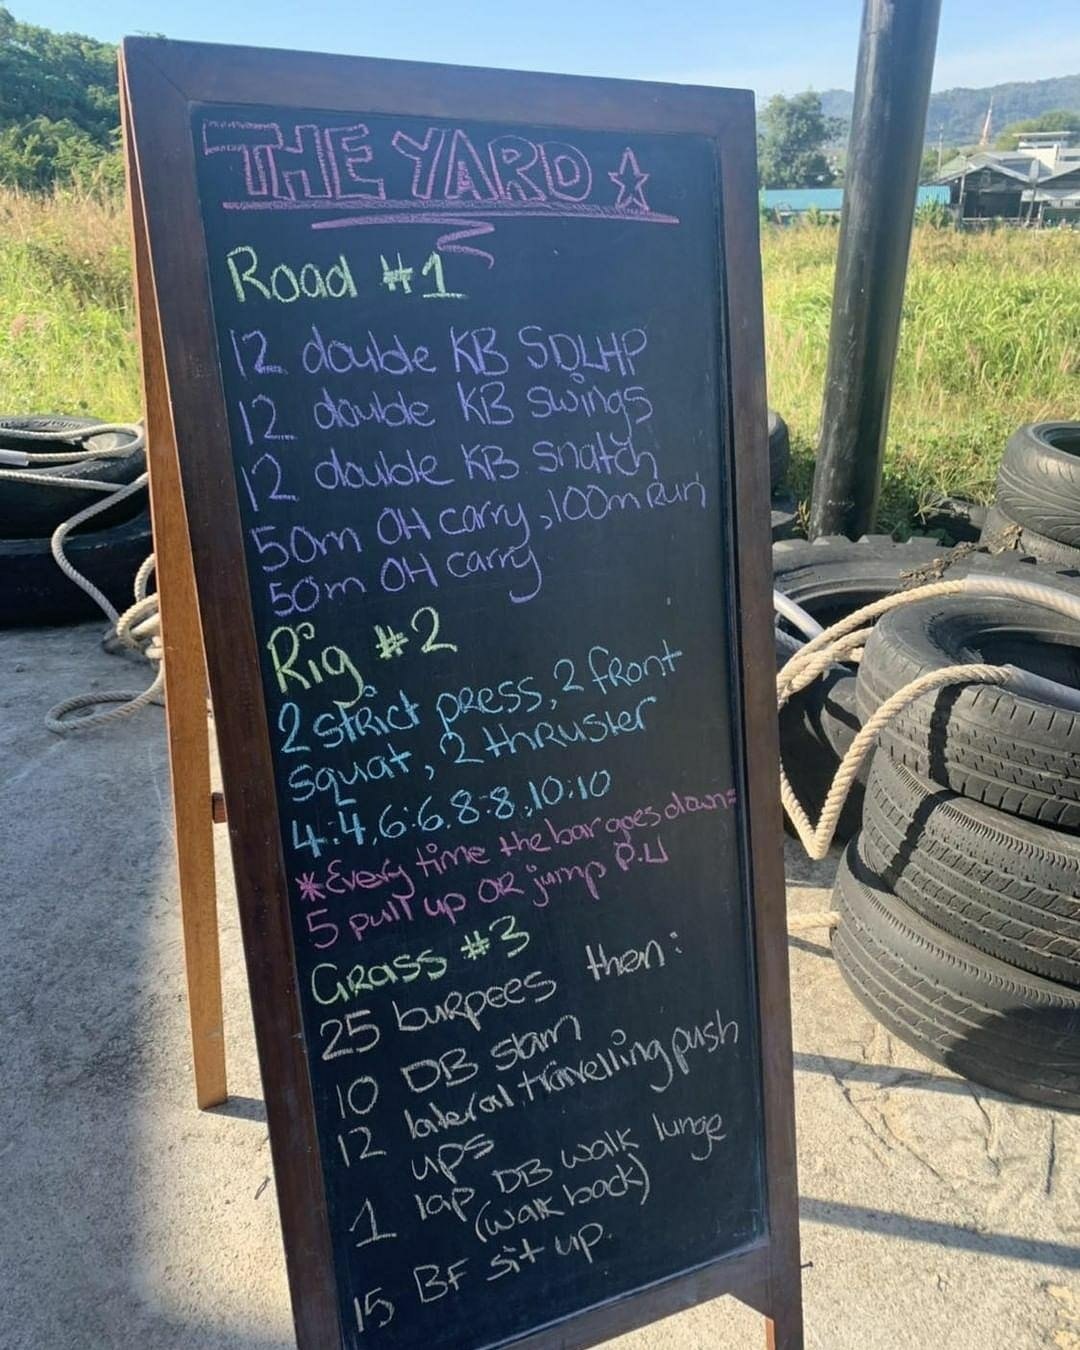 THE YARD
Road #1
12 double KB SDLHP
12 double KB swings
12 double KB snatch
50m OH carry, 100m Run
50m OH carry
Rig #2
2 strict press, 2 front
squat, 2 thruster
4:4, 6:6, 8:8, 10:10
*Every time the bar goes down=
5 pull up OR jump P.U
Grass #3
25 burpees then:
10 DB slam
12 lateral travelling push
ups
1 lap DB walk lunge
(walk back)
15 BF sit up.